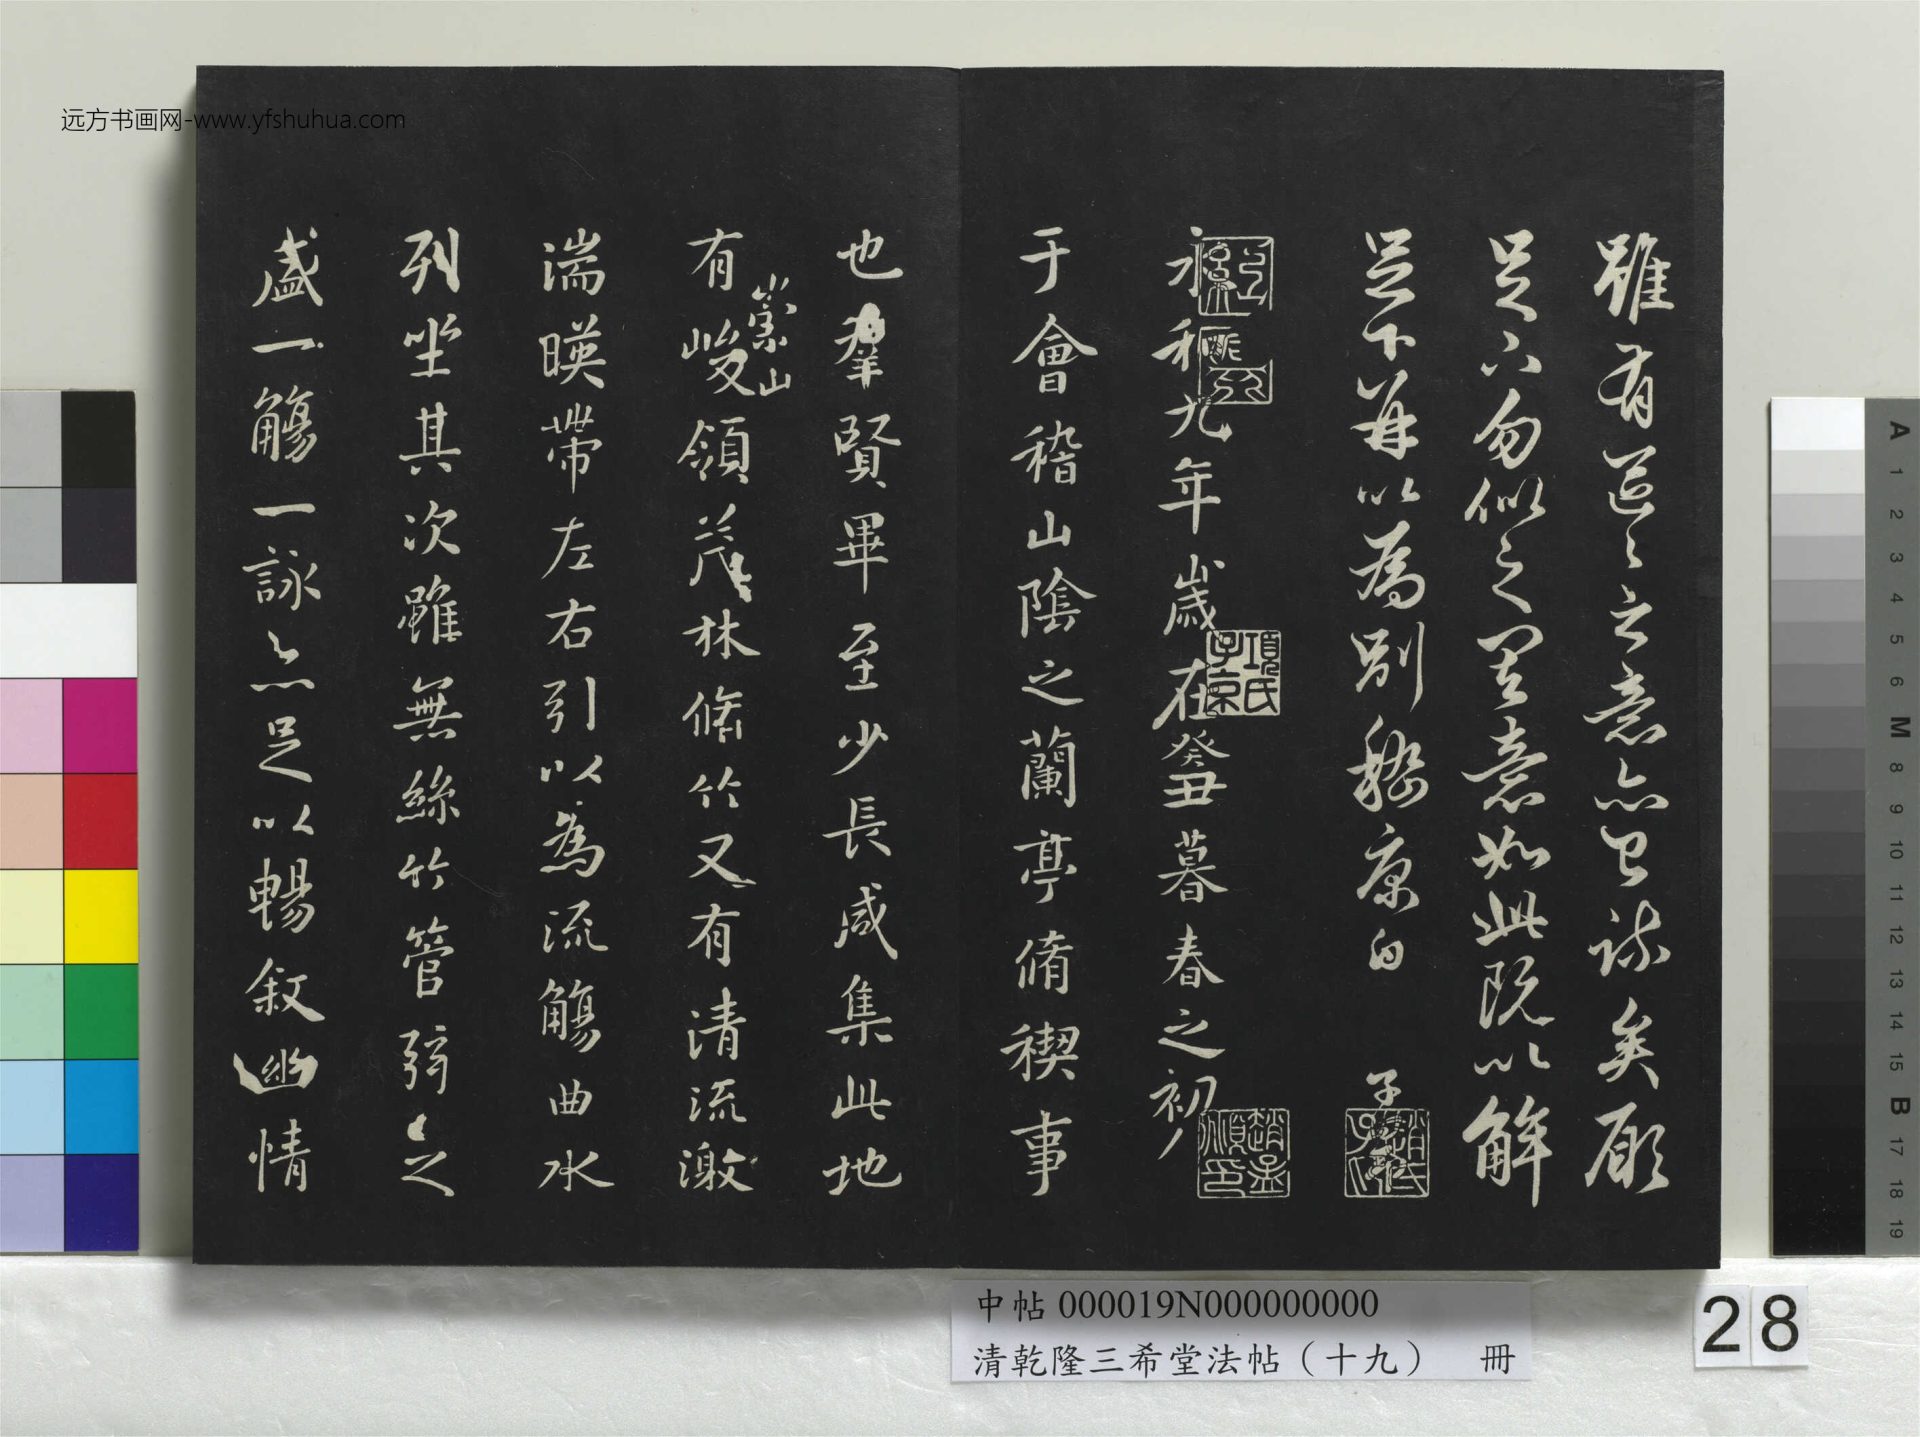 远方书画网-www.yfshuhua.com
雖有區〻之意亦已疎矣願
足下勿似之其意如此既以解
足下并以為別嵇康白
子昂
趙氏子昂
永和九年歲在癸丑暮春之初
項氏子京
趙孟頫印
于會稽山陰之蘭亭脩禊事
也羣賢畢至少長咸集此地
有崇山峻領茂林脩竹又有清流激
湍暎帶左右引以為流觴曲水
列坐其次雖無絲竹管弦之
盛一觴一詠亦足以暢敘幽情
中帖 000019N000000000
清乾隆三希堂法帖（十九） 冊
28
A 1 2 3 4 5 6 M 8 9 10 11 12 13 14 15 B 17 18 19